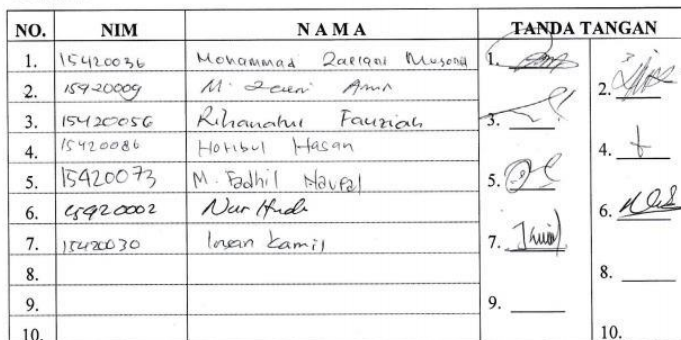 NO. NIM NAMA TANDA TANGAN
1. 15420036 Mohammad Zaelani Musona 1.
2. 15420009 M. Zaeni Amir 2.
3. 15420056 Rihanatul Fauziah 3.
4. 15420086 Hotibul Hasan 4.
5. 15420073 M. Fadhil Naufal 5.
6. 15420002 Nur Huda 6.
7. 15420030 Insan Kamil 7.
8. 8.
9. 9.
10. 10.